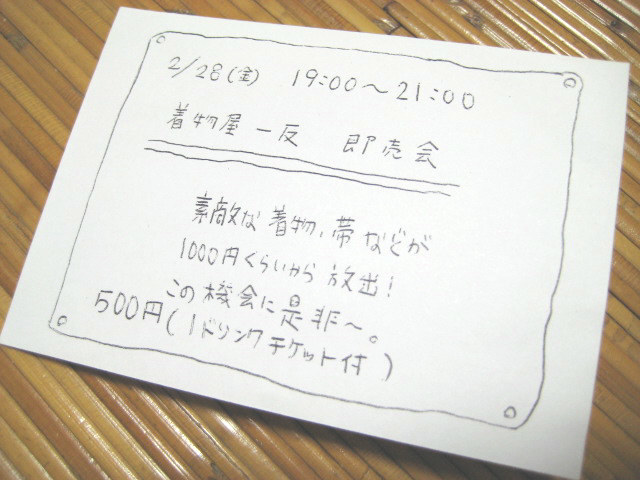 2/28(金) 19:00～21:00
着物屋 一反 即売会
素敵な着物、帯などが
1000円くらいから放出!
この機会に是非～。
500円(1ドリンクチケット付)